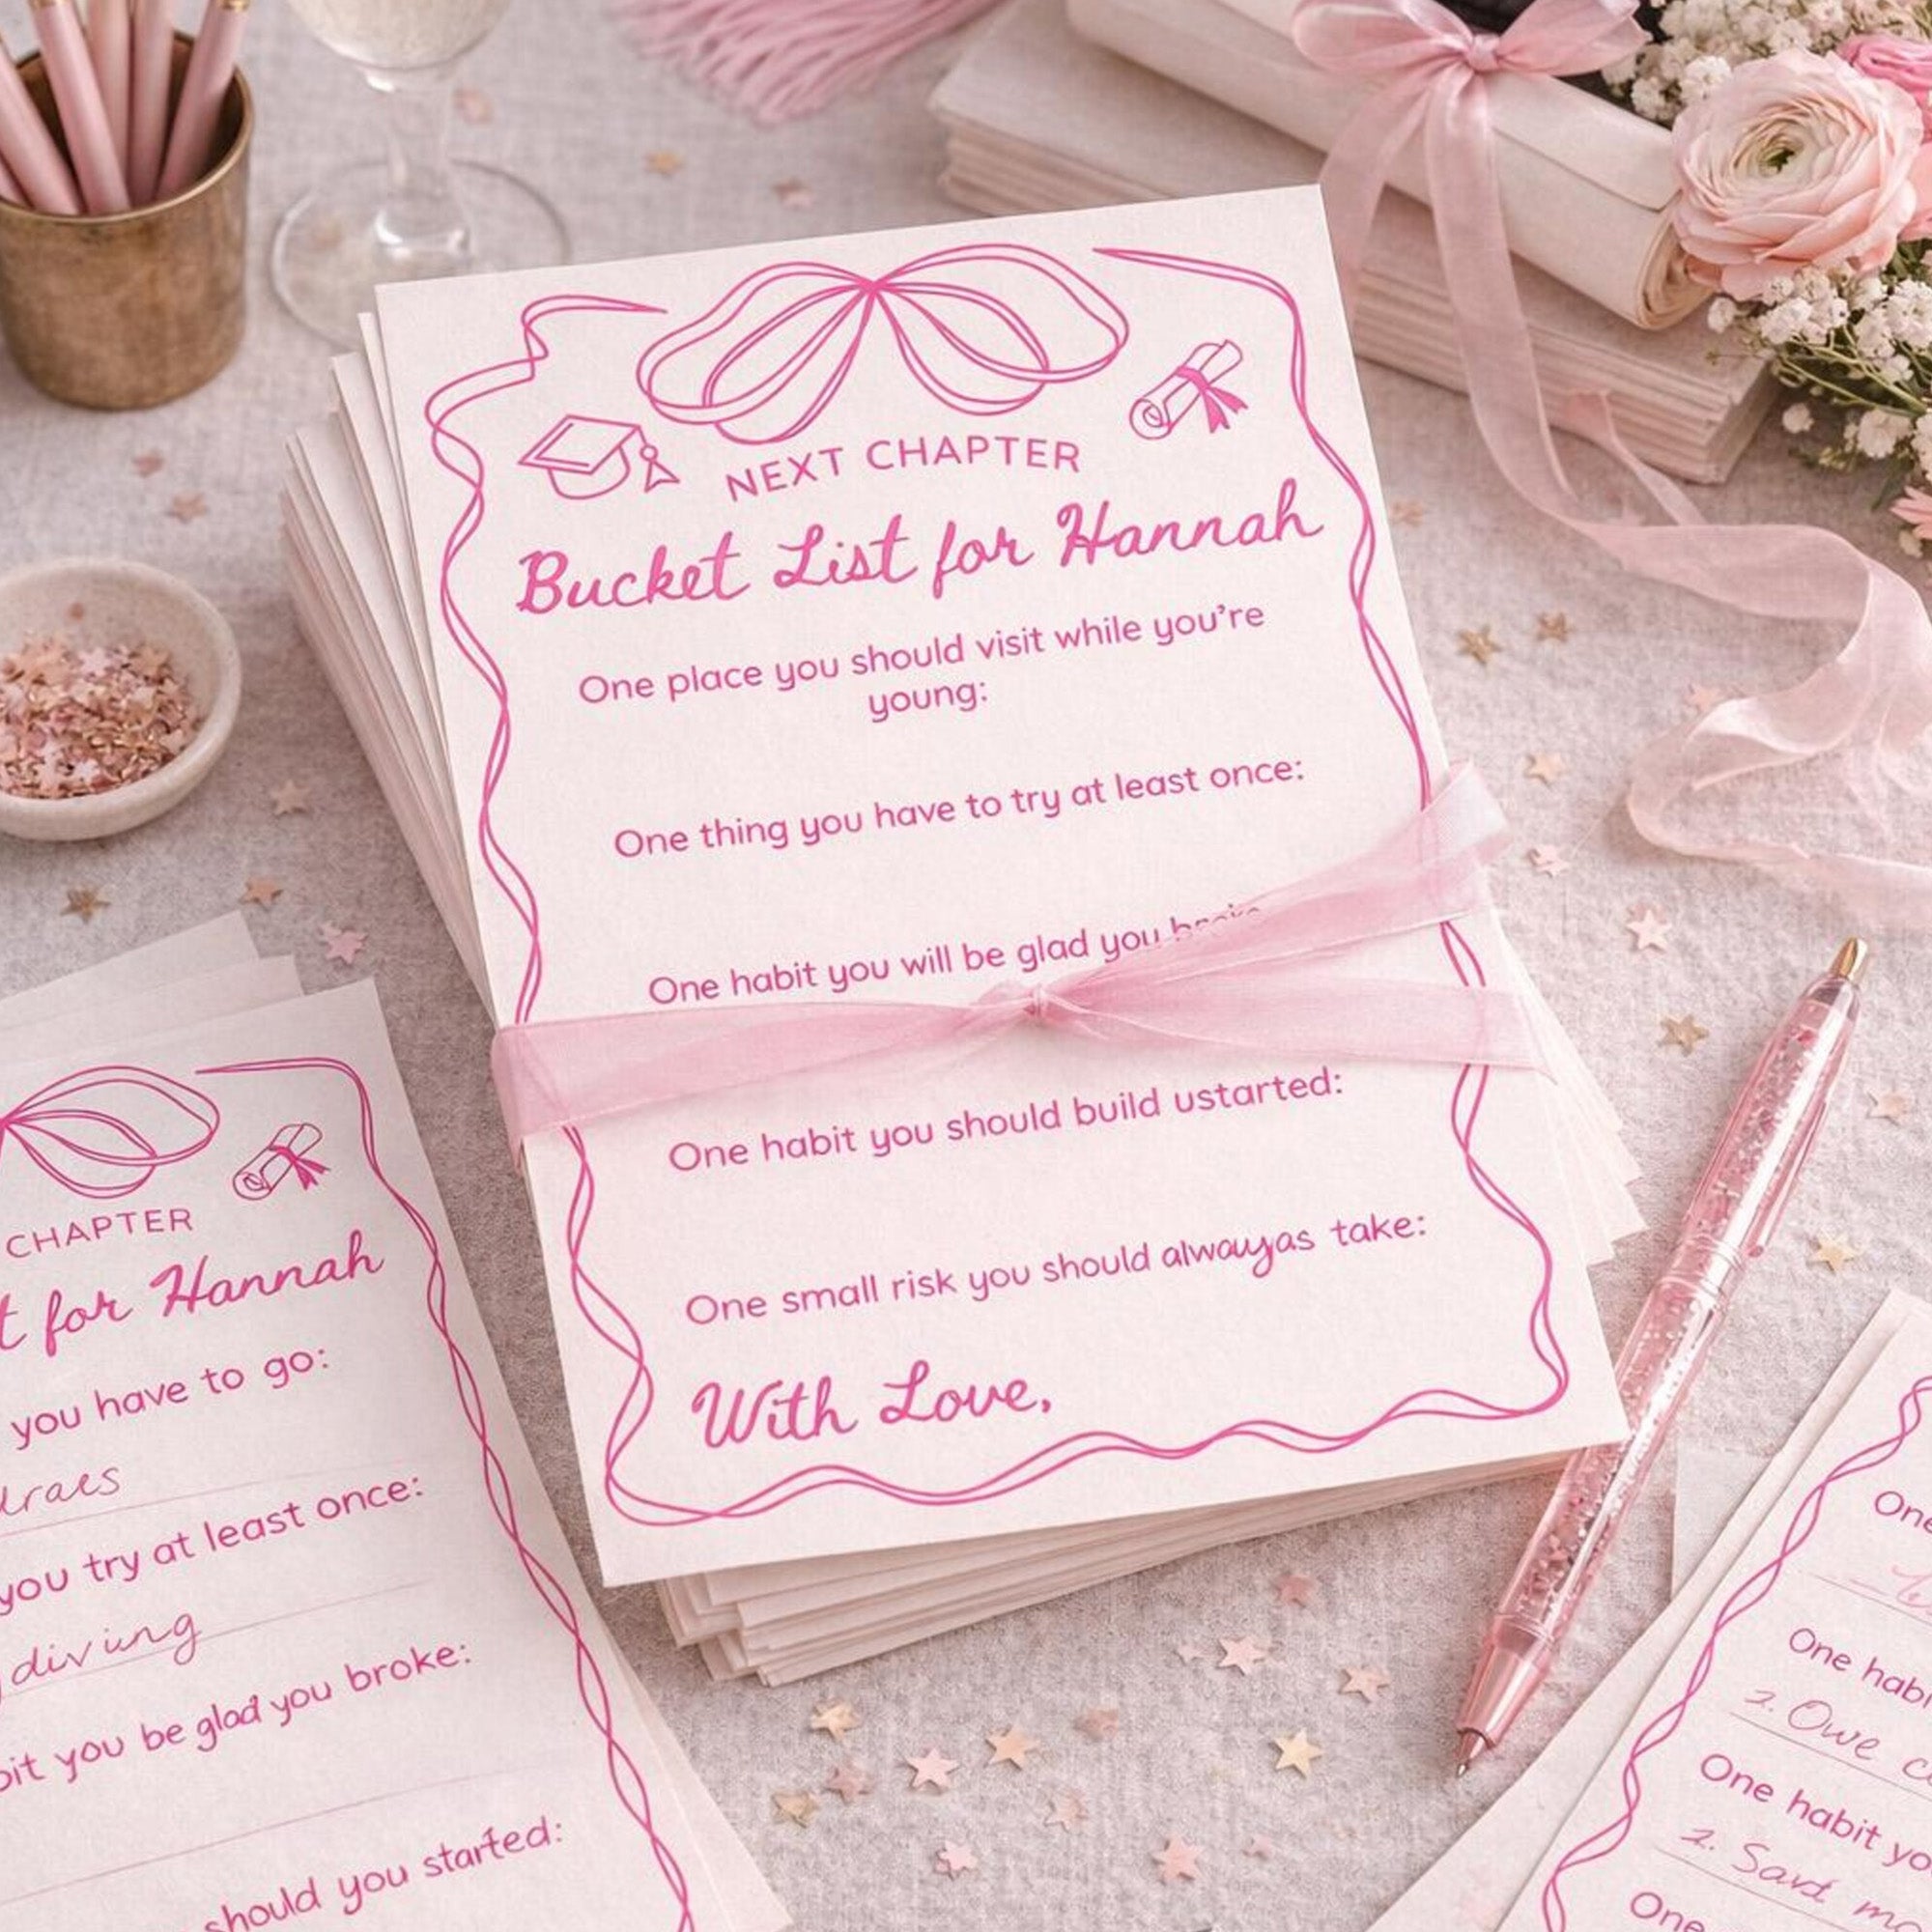 NEXT CHAPTER
Bucket List for Hannah
One place you should visit while you're
young:
One thing you have to try at least once:
One habit you will be glad you broke
One habit you should build ustarted:
One small risk you should alwayas take:
With Love,
CHAPTER
for Hannah
you have to go:
you try at least once:
diving
you be glad you broke:
should you started:
One
One habit
2. Owe
One habit you
2. Sard
One